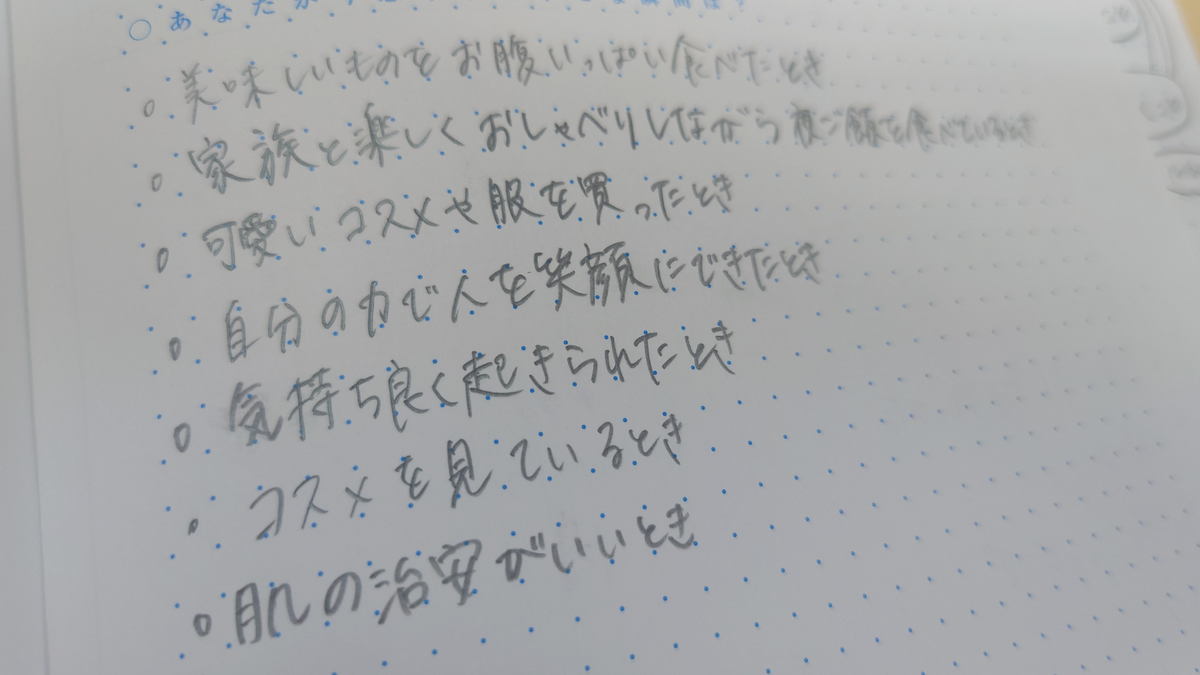 ○あなたが
○美味しいものをお腹いっぱい食べたとき
○家族と楽しくおしゃべりしながら夜ご飯を食べているとき
○可愛いコスメや服を買ったとき
○自分の力で人を笑顔にできたとき
○気持ち良く起きられたとき
・コスメを見ているとき
○肌の治安がいいとき